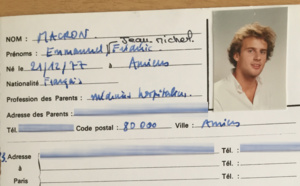 NOM : MACRON
Prénoms : Emmanuel Jean Michel Frédéric
Né le 21/12/77 à Amiens
Nationalité Français
Profession des Parents : médecins hospitaliers
Adresse des Parents :
Tél. Code postal : 80 000 Ville : Amiens
Adresse Tél. :
à Tél. :
Paris Tél. :